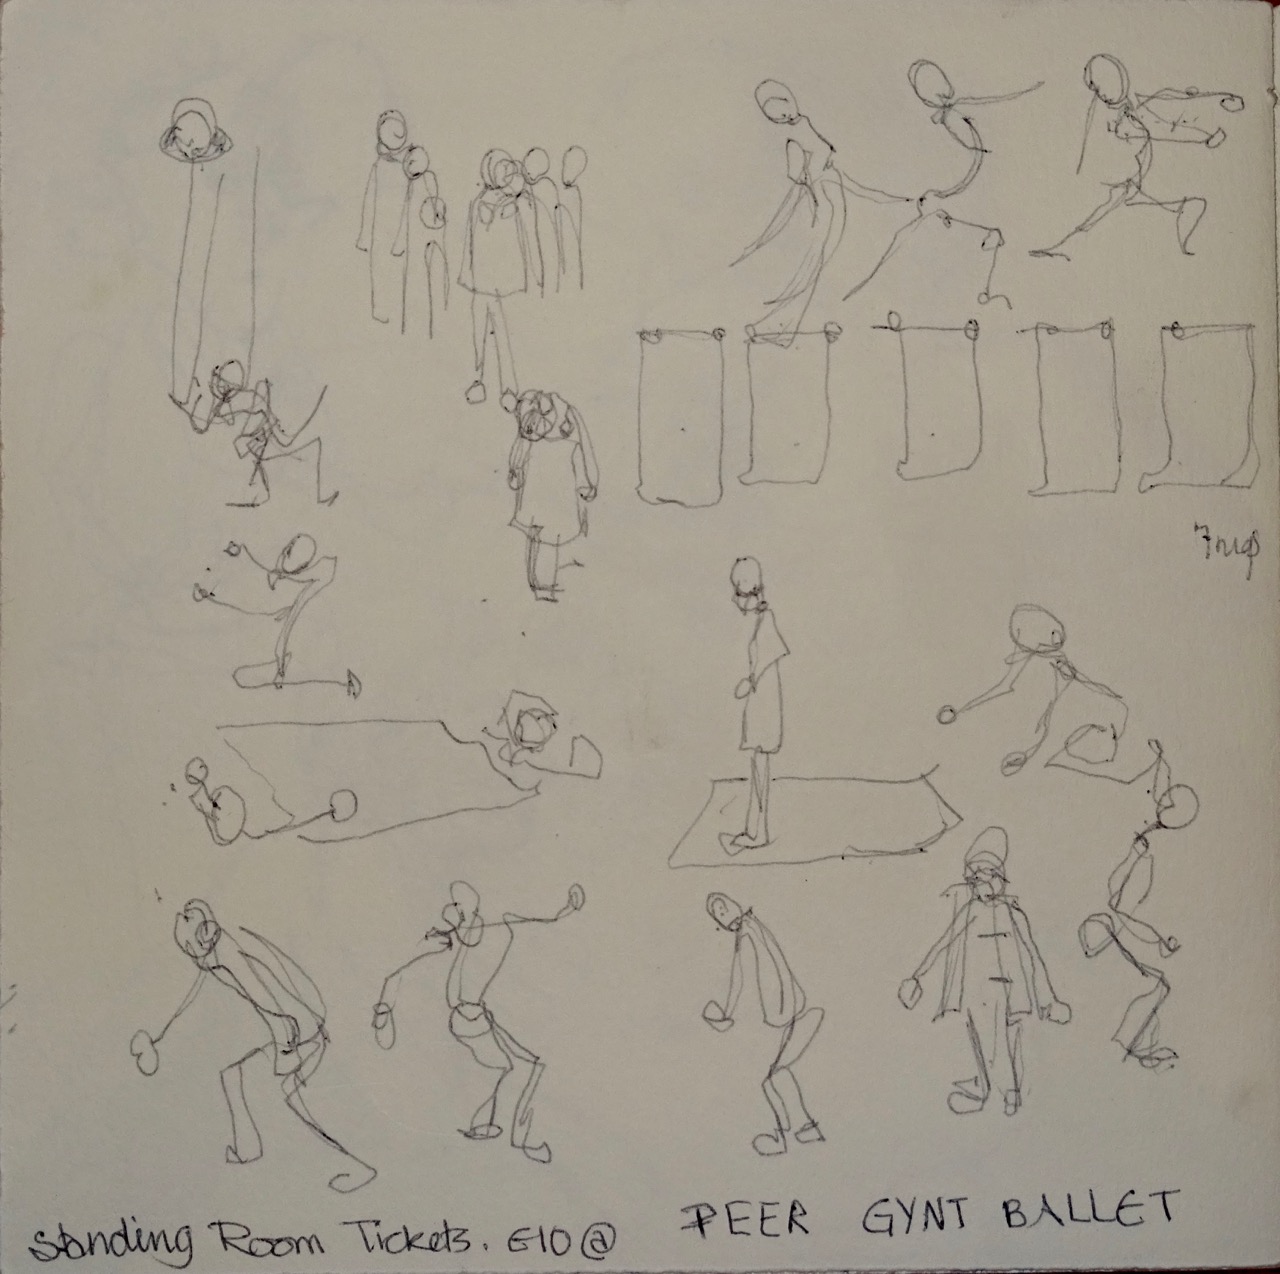 Standing Room Tickets. €10 @ PEER GYNT BALLET